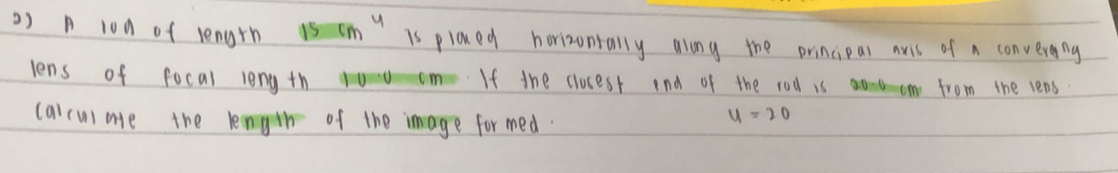 2) A rod of length 15 cm u is placed horizontally along the principal axis of a converging
lens of focal length 10.0 cm. If the closest end of the rod is 20.0 cm from the lens.
Calculate the length of the image formed.
u = 20